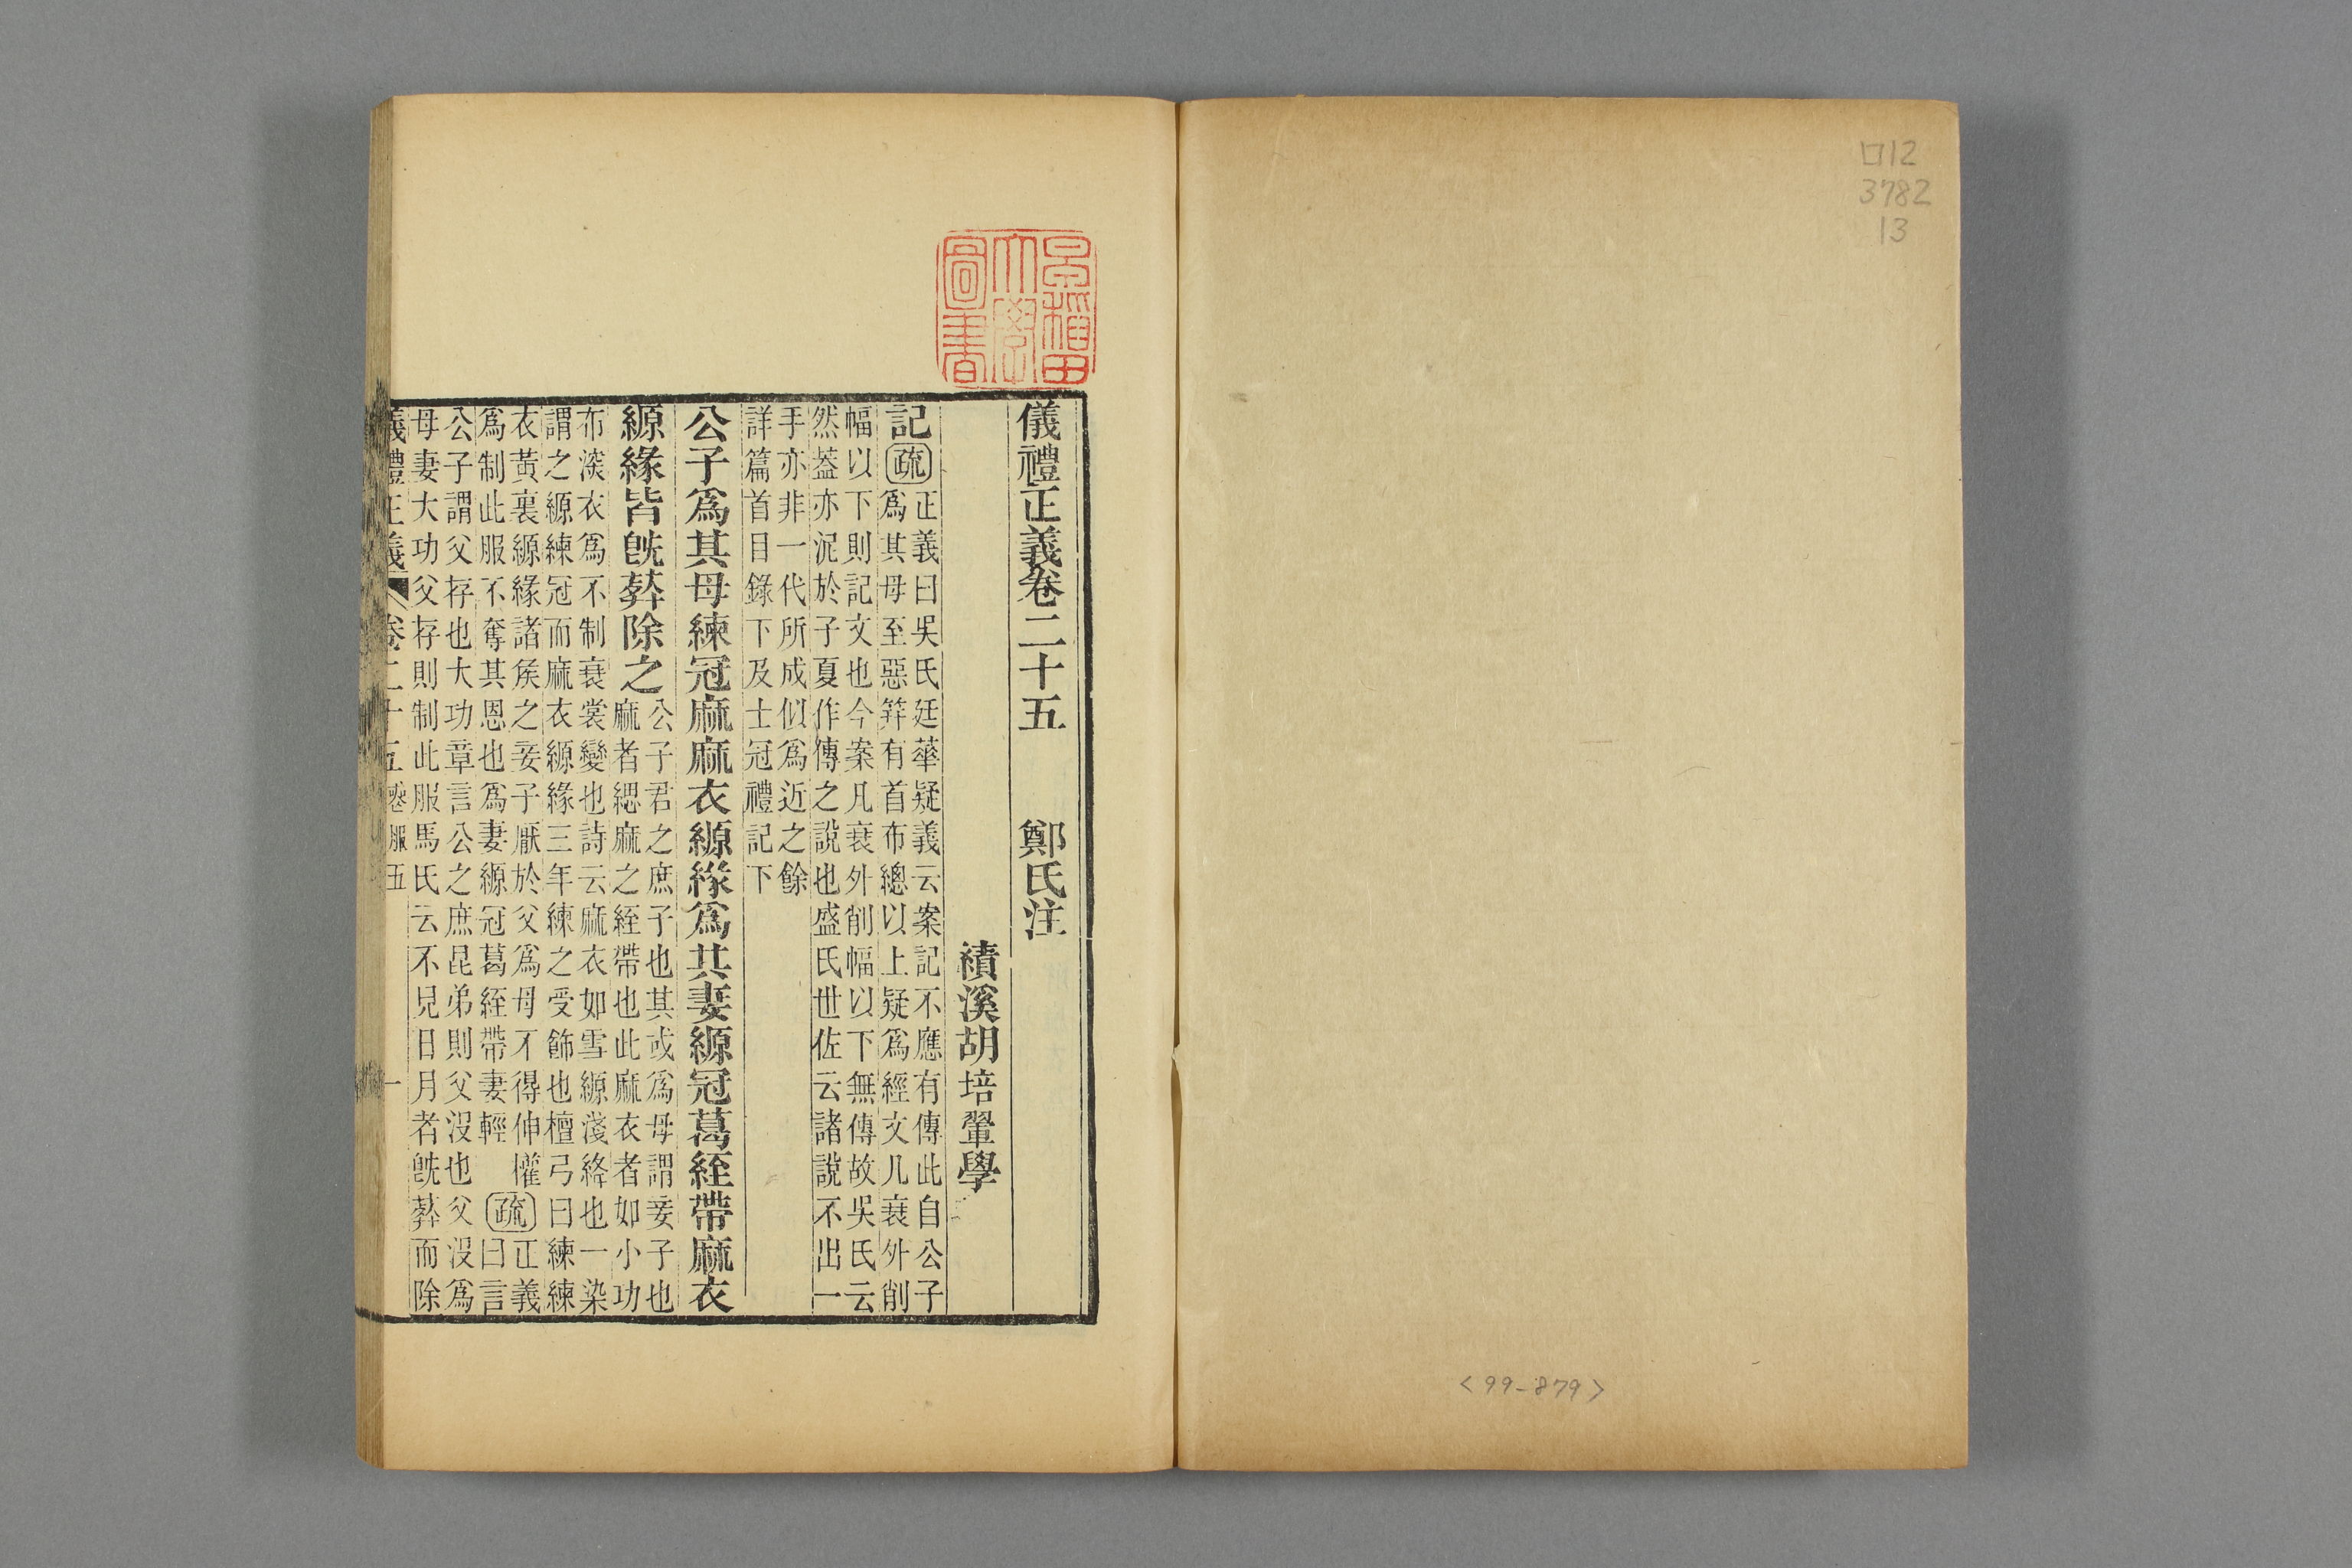 口12
3782
13
<99-879>
早稻田大學圖書
儀禮正義卷二十五 鄭氏注
績溪胡培翬學
記
疏
正義曰吳氏廷華疑義云案記不應有傳此自公子
爲其母至惡笄有首布總以上疑爲經文凡衰外削
幅以下則記文也今案凡衰外削幅以下無傳故吳氏云
然葢亦泥於子夏作傳之說也盛氏世佐云諸說不出一
手亦非一代所成似爲近之餘
詳篇首目錄下及士冠禮記下
公子爲其母練冠麻麻衣縓緣爲其妻縓冠葛絰帶麻衣
縓緣皆旣葬除之
公子君之庶子也其或爲母謂妾子也
麻者緦麻之絰帶也此麻衣者如小功
布深衣爲不制衰裳變也詩云麻衣如雪縓淺絳也一染
謂之縓練冠而麻衣縓緣三年練之受飾也檀弓曰練練
衣黃裏縓緣諸矦之妾子厭於父爲母不得伸權
爲制此服不奪其恩也爲妻縓冠葛絰帶妻輕
疏
正義
曰言
公子謂父存也大功章言公之庶昆弟則父沒也父沒爲
母妻大功父存則制此服馬氏云不見日月者旣葬而除
儀禮正義 卷二十五 喪服五 一